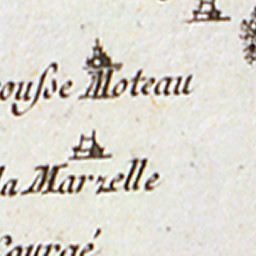 ousse Moteau
la Marzelle
Courgé